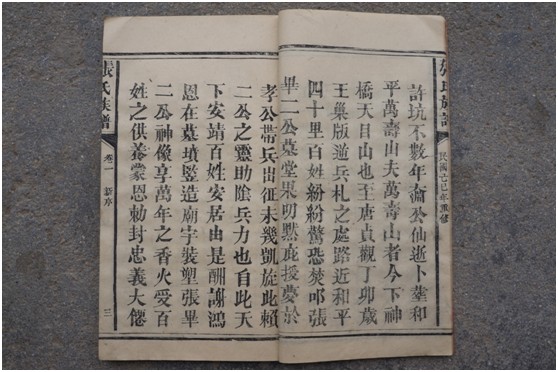 張氏族譜
民國己巳年重修
許坑不數年瀹公仙逝卜葬和
平萬壽山夫萬壽山者今下神
橋天目山也至唐貞觀丁卯歲
王巢版逆兵札之處路近和平
四十里百姓紛紛驚恐焚叩張
畢二公墓堂果叨默庇授夢於
孝公帶兵出征未幾凱旋此賴
二公之靈助陰兵力也自此天
下安靖百姓安居由是酬謝鴻
恩在墓墳竪造廟宇裝塑張畢
二公神像享萬年之香火受百
姓之供養蒙恩勅封忠義大僊
張氏族譜
卷一
新序
三